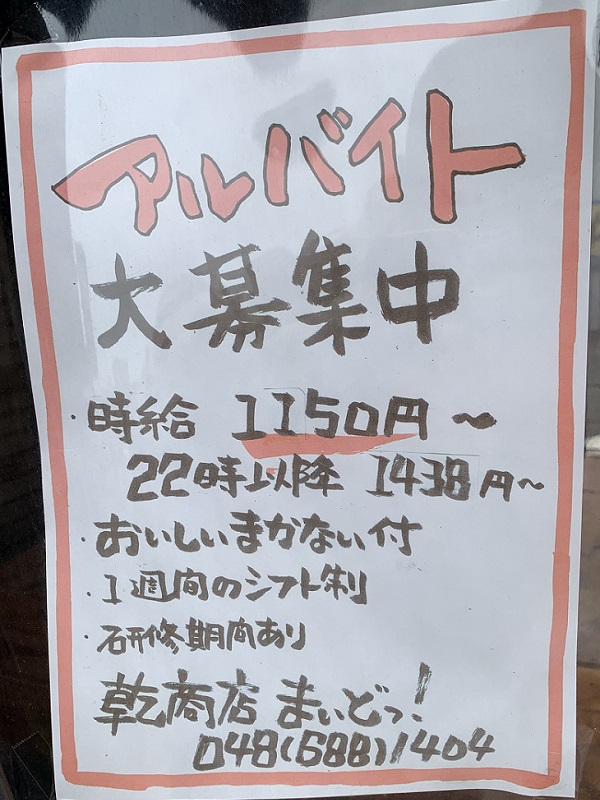 アルバイト
大募集中
・時給 1150円～
22時以降 1438円～
・おいしいまかない付
・1週間のシフト制
・研修期間あり
乾商店 まいどっ!
048(688)1404